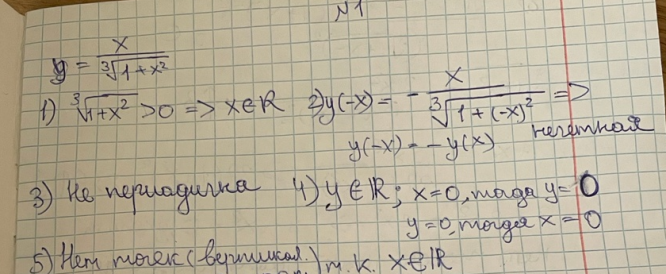 N1
y = x / ∛(1+x²)
1) ∛(1+x²) > 0 => x∈R 2) y(-x) = - x / ∛(1+(-x)²) =>
нечетная
y(-x) = -y(x)
3) Не периодична 4) y∈R; x=0, тогда y=0
y=0, тогда x=0
5) Нет точек (вертикал.) т.к. x∈R